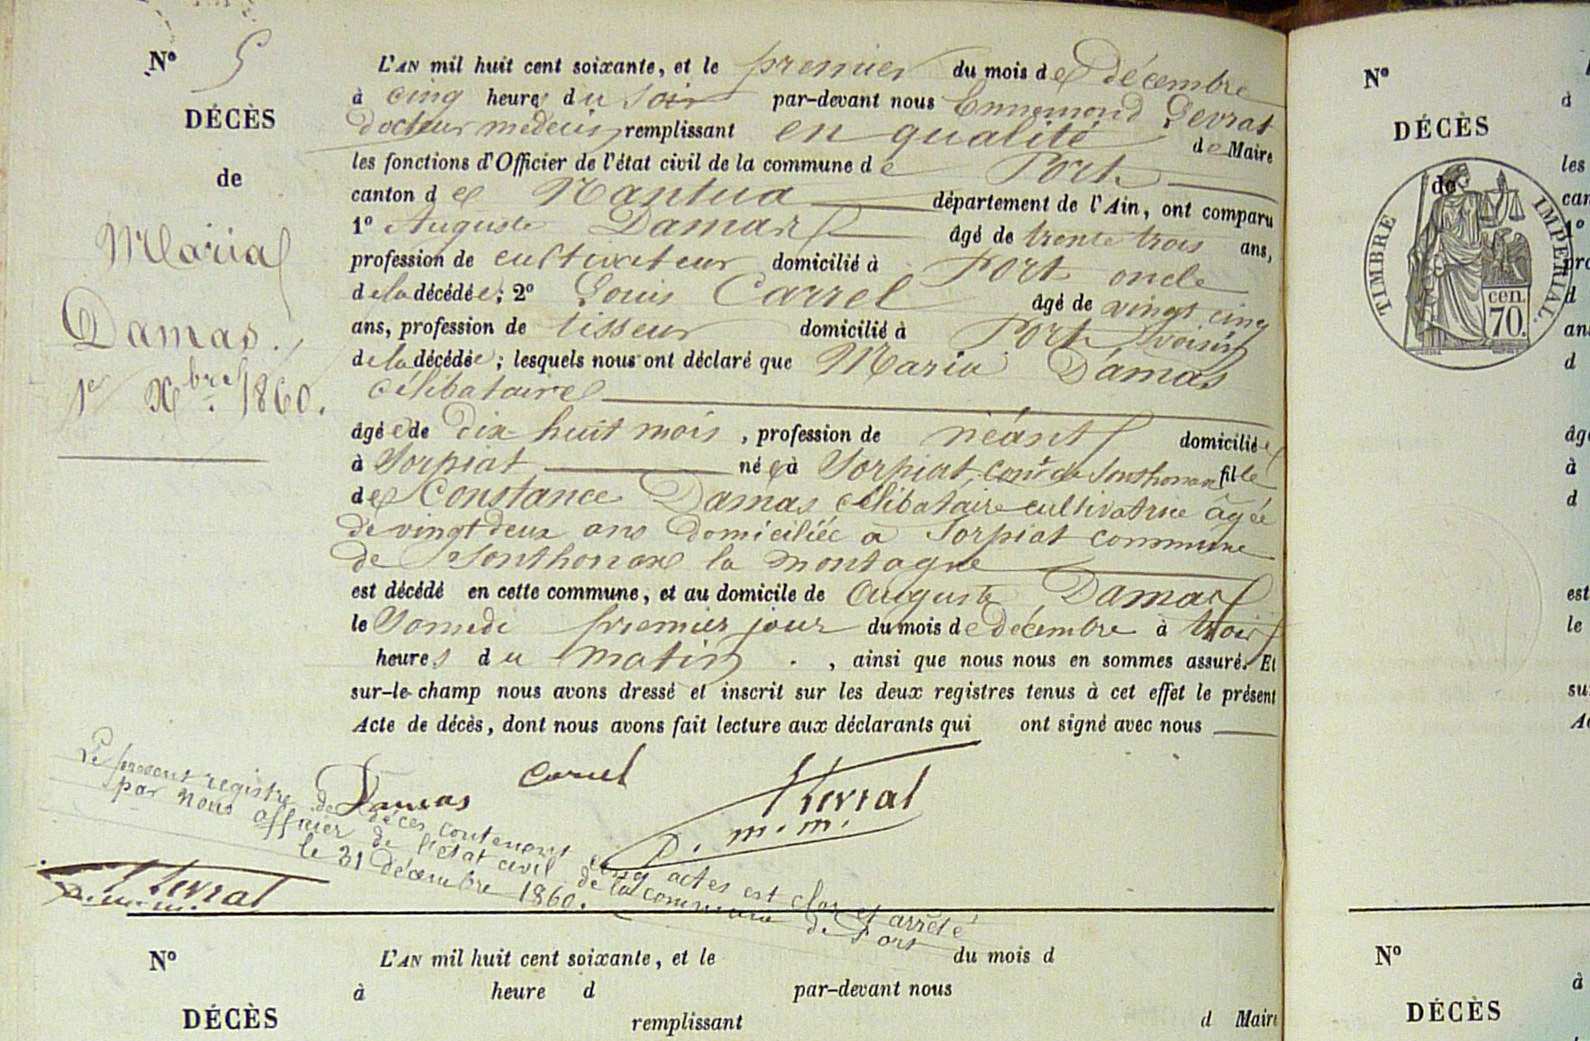 N° 5
DÉCÈS
de
Maria
Damas.
1er Xbre 1860.
L'AN mil huit cent soixante, et le premier du mois de décembre
à cinq heures du soir par-devant nous Ennemond Sevrat
docteur medecin remplissant en qualité de Maire
les fonctions d'Officier de l'état civil de la commune de Port
canton de Nantua département de l'Ain, ont comparu
1° Auguste Damas âgé de trente trois ans,
profession de cultivateur domicilié à Port oncle
de la décédée; 2° Louis Carrel âgé de vingt cinq
ans, profession de tisseur domicilié à Port voisin
de la décédée; lesquels nous ont déclaré que Maria Damas
célibataire
âgée de dix huit mois, profession de néant domiciliée
à Sorpiat née à Sorpiat, con de Sonthonax fille
de Constance Damas célibataire cultivatrice âgée
de vingt deux ans domiciliée à Sorpiat commune
de Sonthonax la montagne
est décédé en cette commune, et au domicile de Auguste Damas
le Samedi premier jour du mois de Décembre à trois
heures du matin, ainsi que nous nous en sommes assuré. Et
sur-le-champ nous avons dressé et inscrit sur les deux registres tenus à cet effet le présent
Acte de décès, dont nous avons fait lecture aux déclarants qui ont signé avec nous
Damas Carrel
D. m. m.
Le present registre de décès contenant cinq actes est clos et arrêté
par nous officier de l'état civil de la commune de Port
le 31 décembre 1860.
D. m. m.
N°
DÉCÈS
L'AN mil huit cent soixante, et le du mois d
à heure d par-devant nous
remplissant d Maire
N°
DÉCÈS
de
TIMBRE IMPERIAL.
70 cen.
d
les
can
1°
pro
d
ans
d
âgé
à
d
est
le
su
Ac
N°
DÉCÈS
à